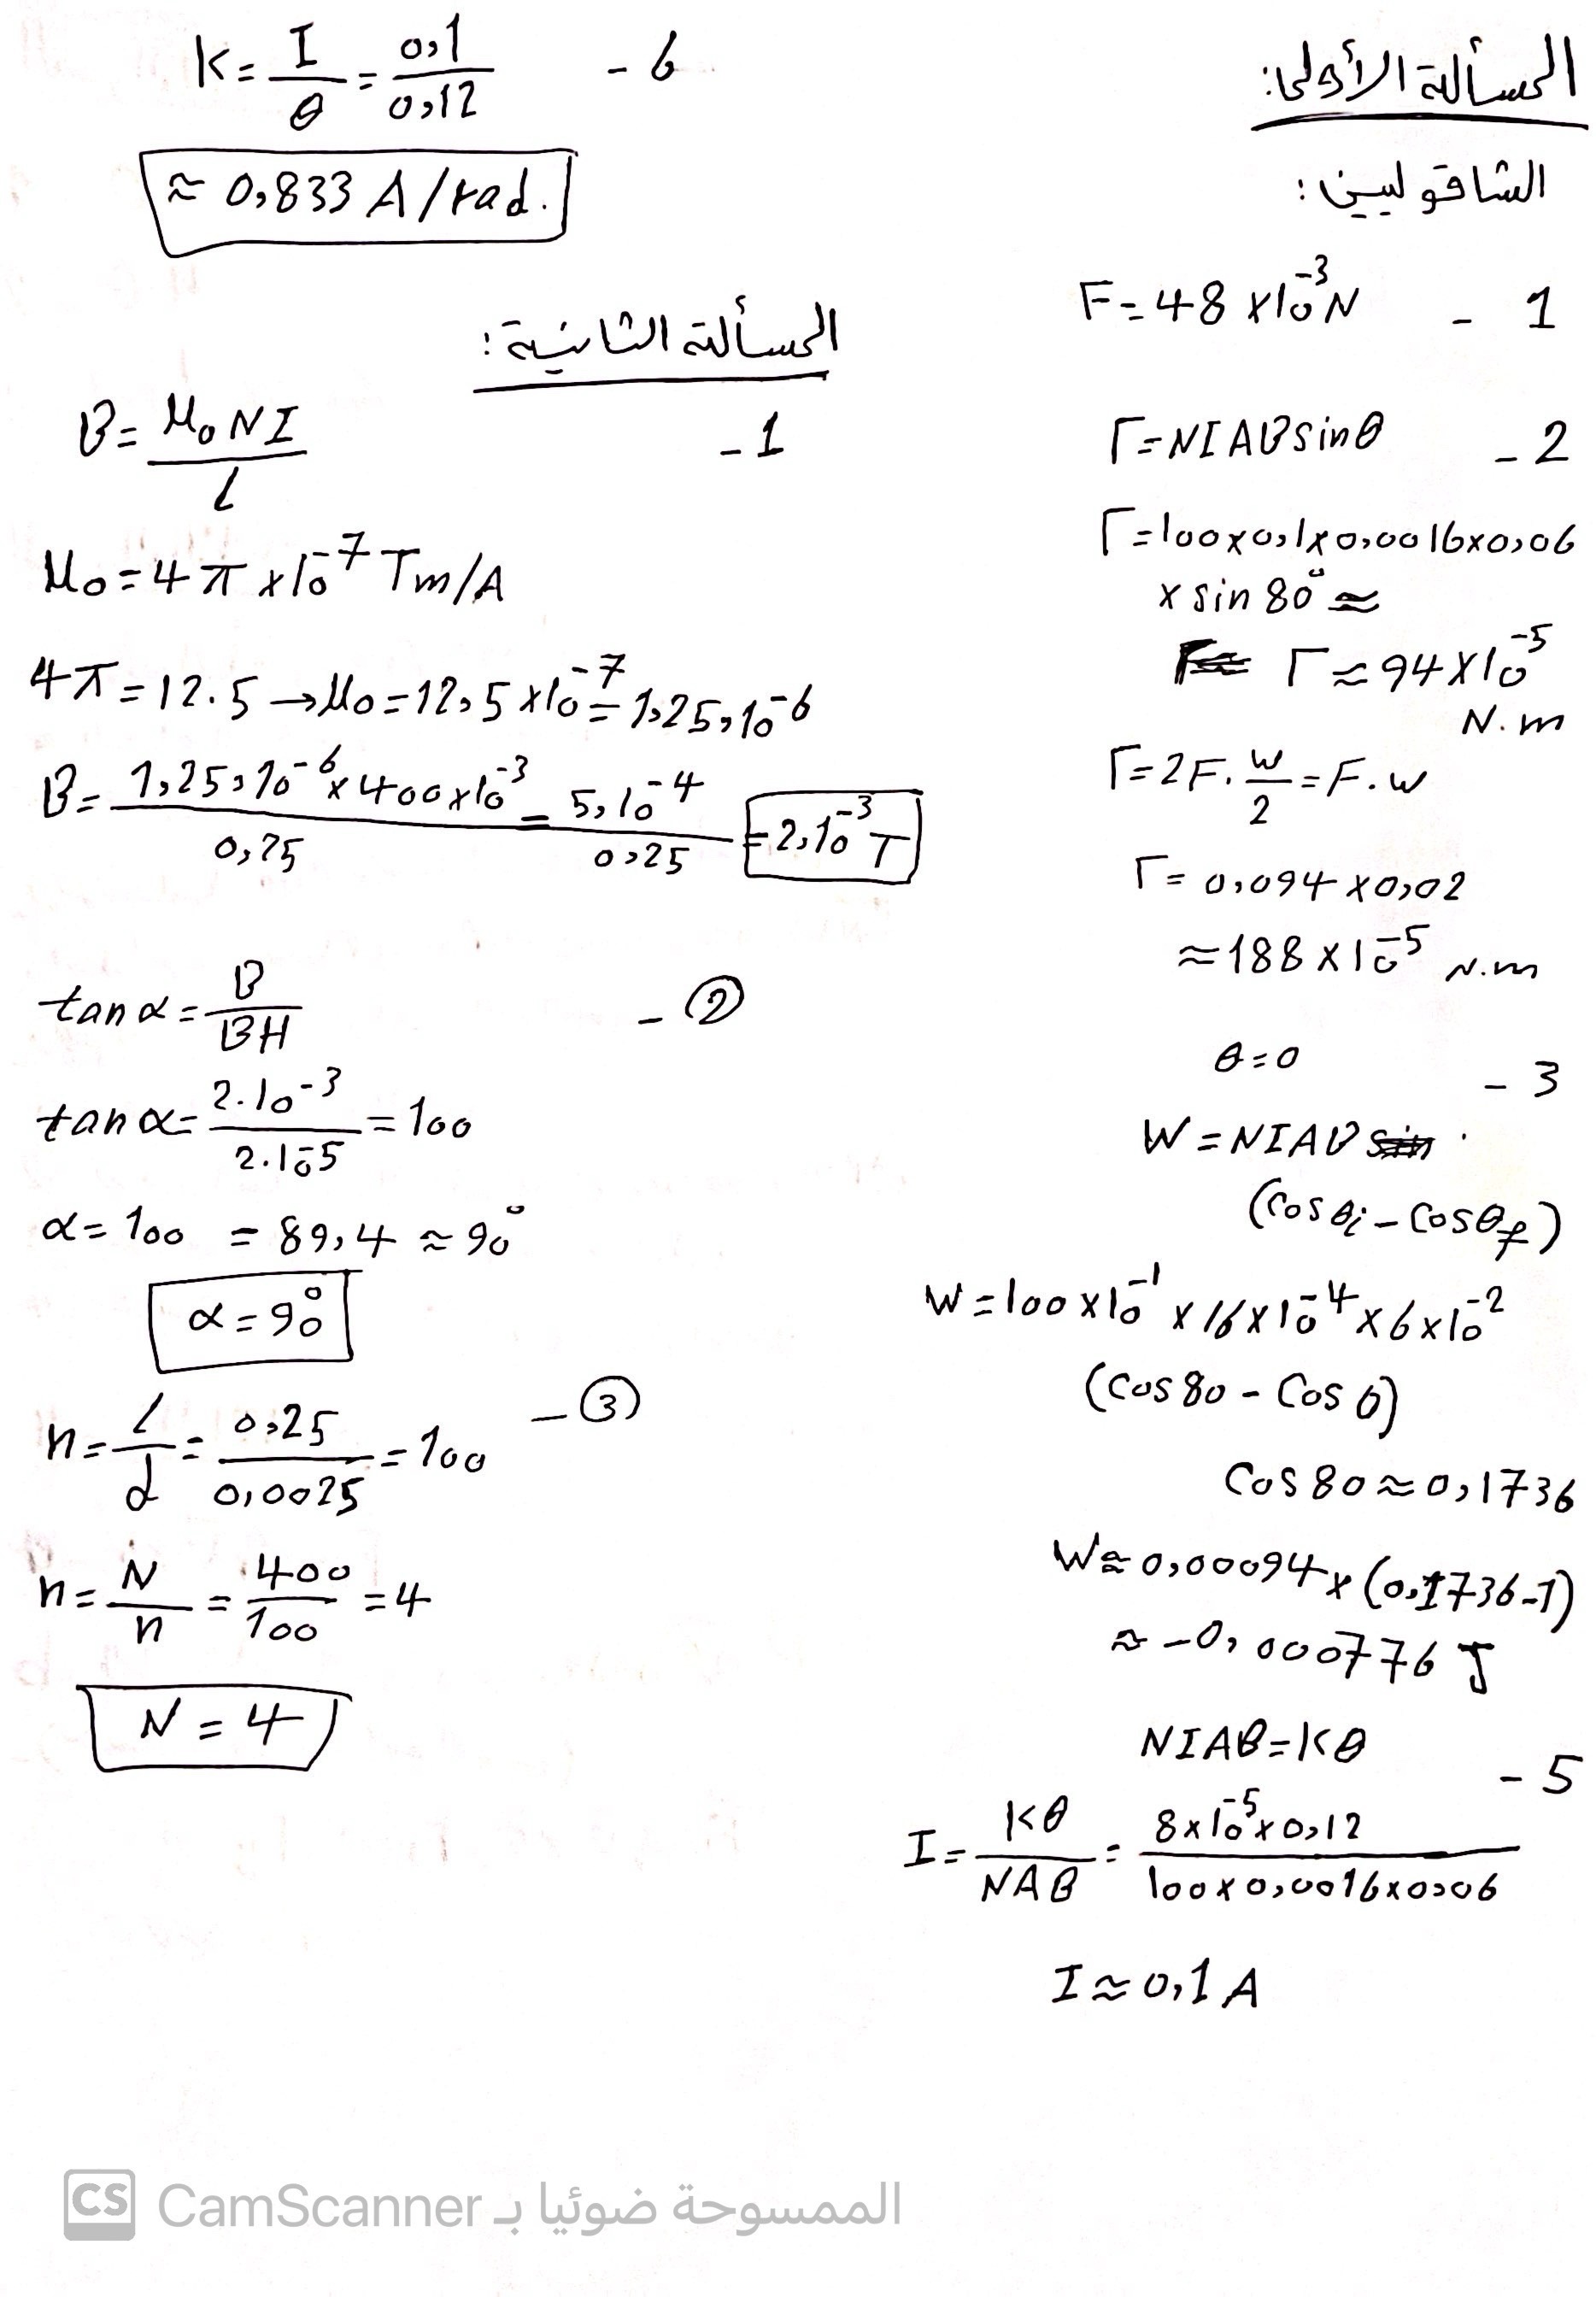 المسألة الأولى:
الشاقوليين:
1 - F = 48 × 10⁻³ N
2 - Γ = NIAB sin θ
Γ = 100 × 0,1 × 0,0016 × 0,06
× sin 80° ≈
Γ ≈ 94 × 10⁻⁵
N.m
Γ = 2F. w/2 = F. w
Γ = 0,094 × 0,02
≈ 188 × 10⁻⁵ N.m
3 - θ = 0
W = NIAB
(Cos θi - Cos θf)
W = 100 × 10⁻¹ × 16 × 10⁻⁴ × 6 × 10⁻²
(Cos 80 - Cos 0)
Cos 80 ≈ 0,1736
W ≈ 0,00094 × (0,1736 - 1)
≈ -0,000776 J
5 - NIAB = Kθ
I = Kθ/NAB = 8 × 10⁻⁵ × 0,12/100 × 0,0016 × 0,06
I ≈ 0,1 A
6 - K = I/θ = 0,1/0,12
≈ 0,833 A/rad.
المسألة الثانية:
1 - B = μ₀NI/l
μ₀ = 4π × 10⁻⁷ Tm/A
4π = 12.5 → μ₀ = 12,5 × 10⁻⁷ = 1,25,10⁻⁶
B = 1,25,10⁻⁶ × 400 × 10⁻³/0,25 = 5,10⁻⁴/0,25 = 2,10⁻³ T
2 - tan α = B/BH
tan α = 2.10⁻³/2.10⁻⁵ = 100
α = 100 = 89,4 ≈ 90°
α = 90°
3 - n = l/d = 0,25/0,0025 = 100
n = N/n = 400/100 = 4
N = 4
CS CamScanner الممسوحة ضوئيا بـ